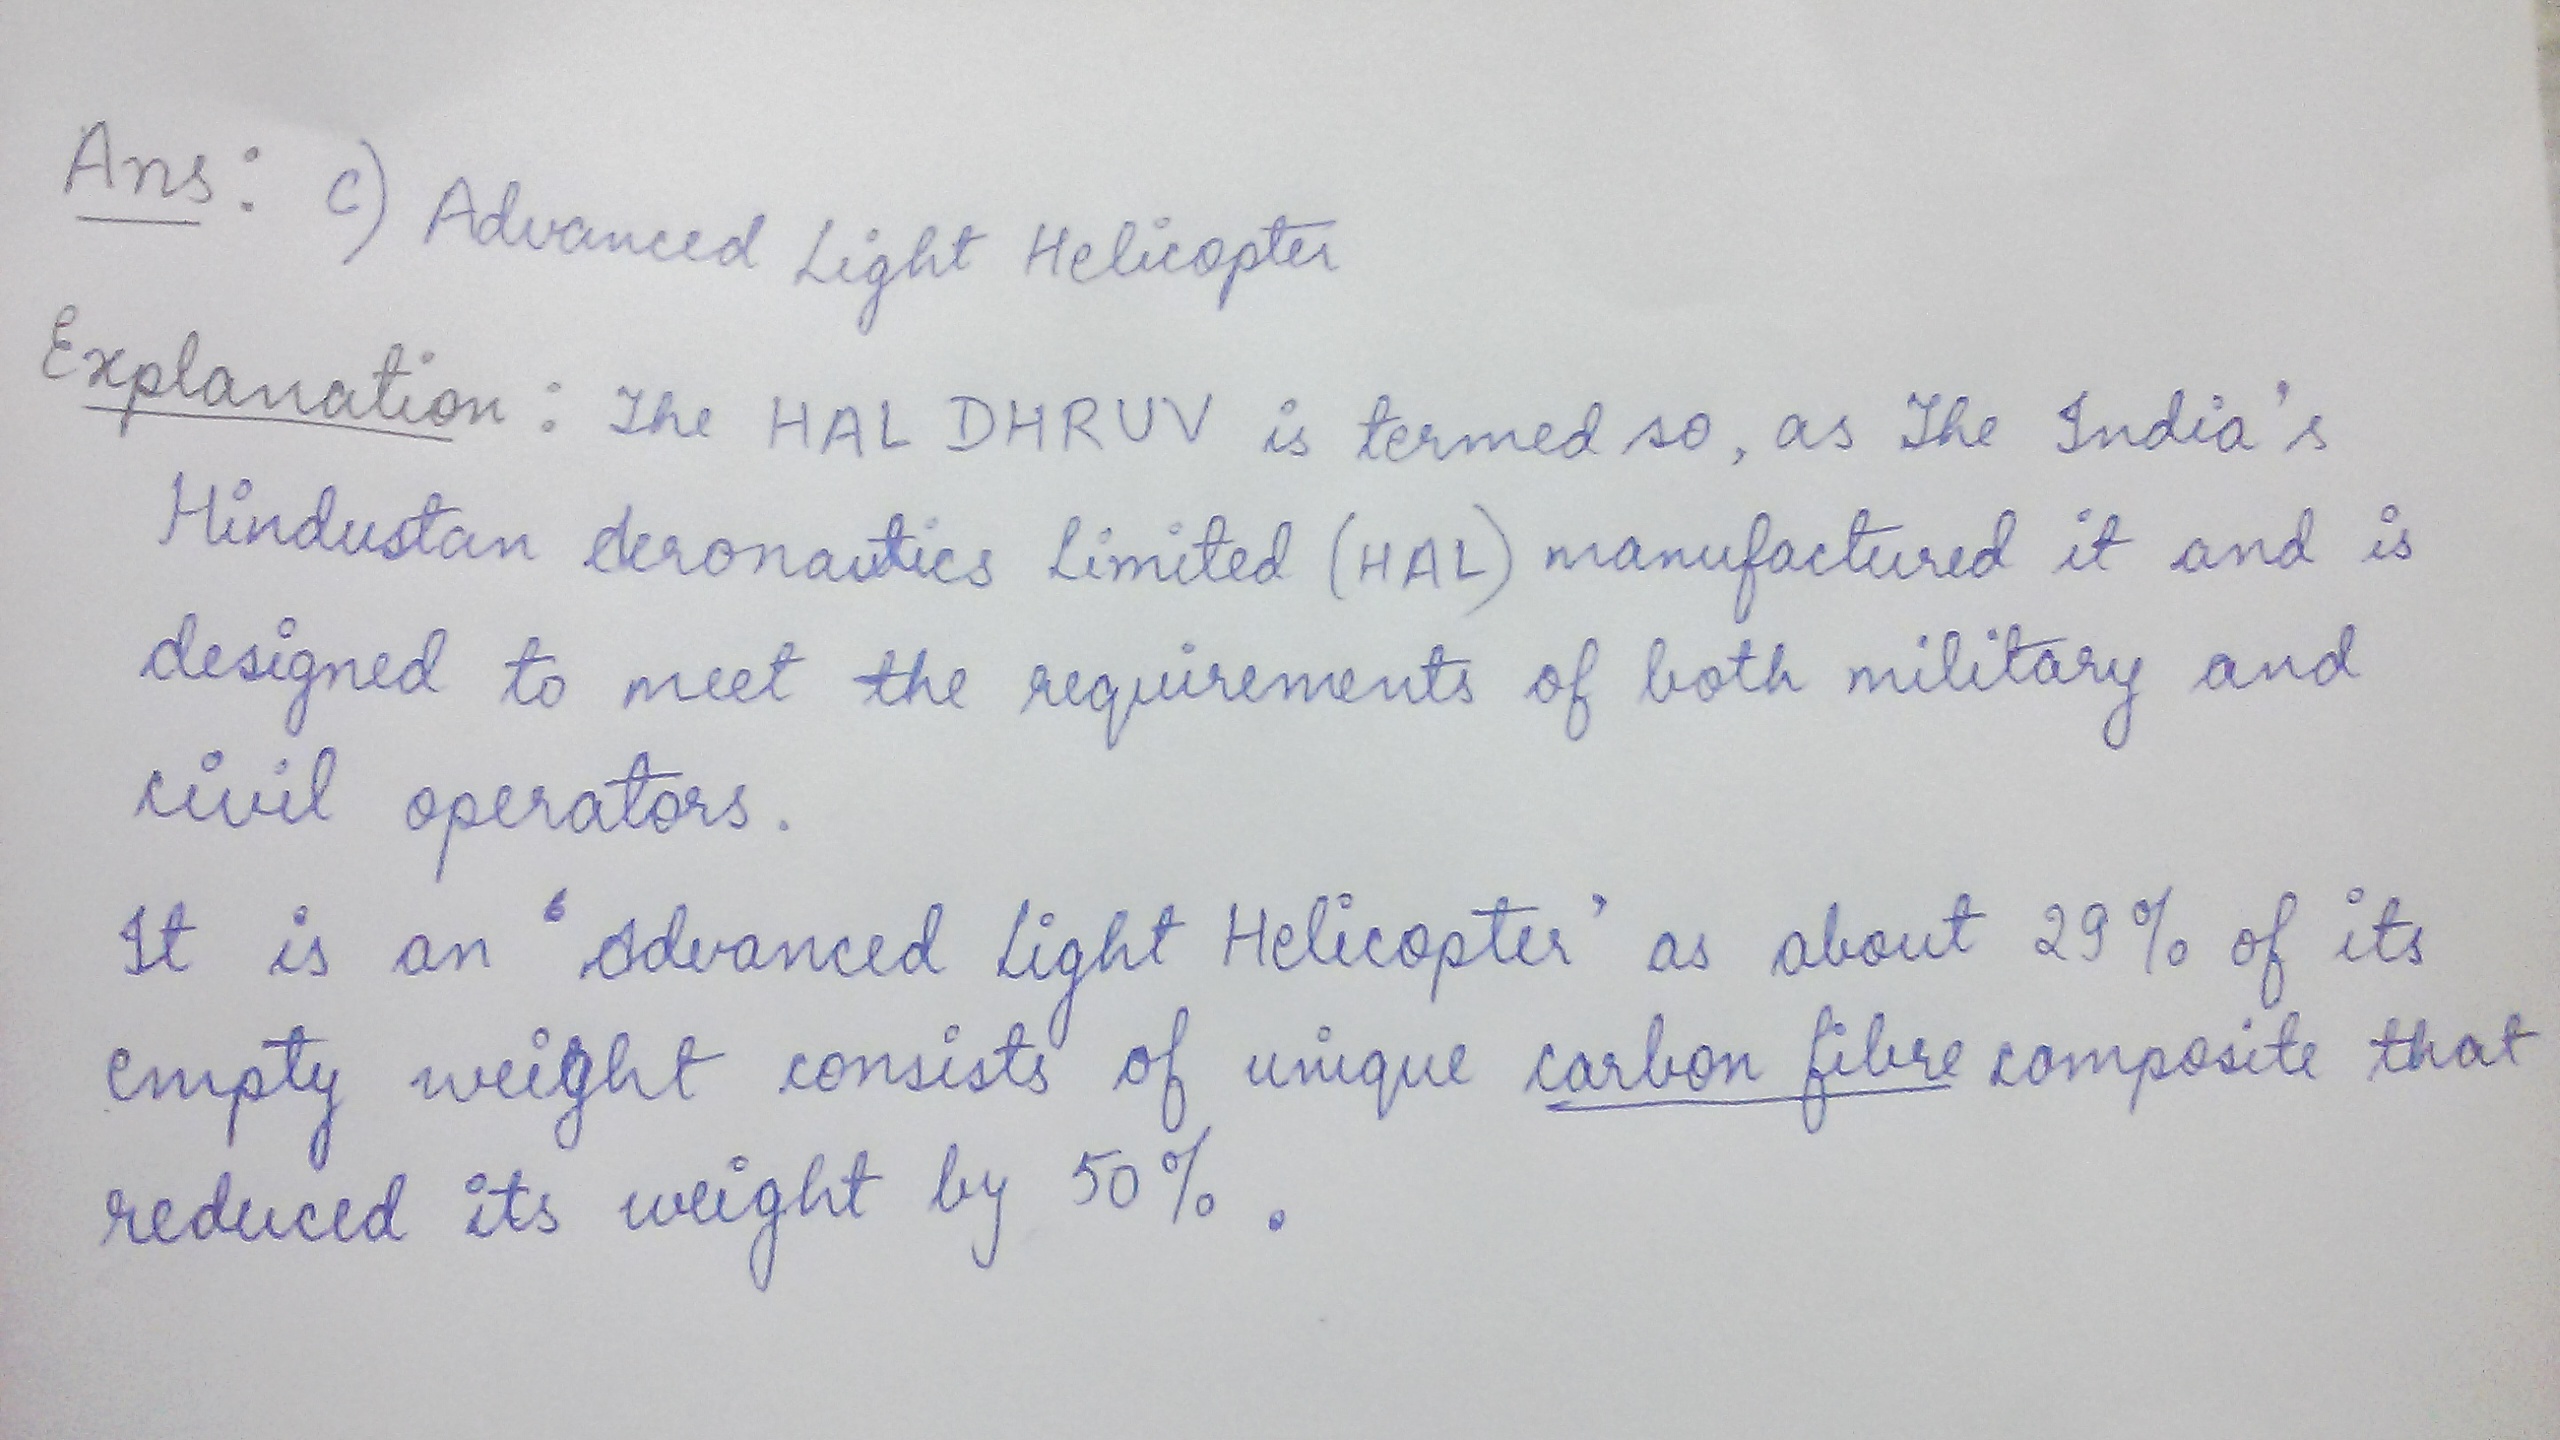 Ans: C) Advanced Light Helicopter
Explanation: The HAL DHRUV is termed so, as The India's
Hindustan Aeronautics Limited (HAL) manufactured it and is
designed to meet the requirements of both military and
civil operators.
It is an 'Advanced Light Helicopter' as about 29% of its
empty weight consists of unique carbon fibre composite that
reduced its weight by 50%.